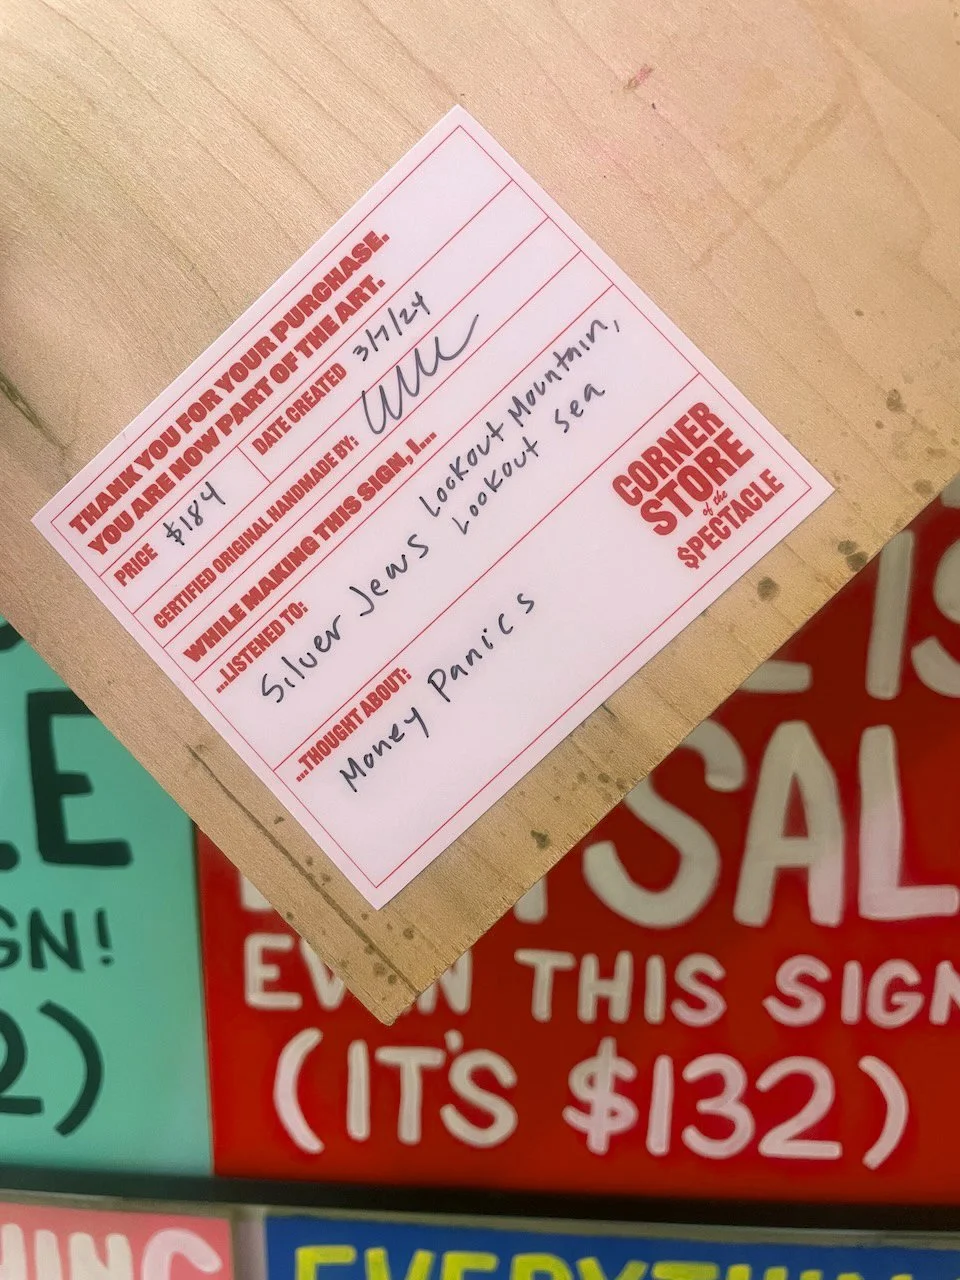 THANK YOU FOR YOUR PURCHASE.
YOU ARE NOW PART OF THE ART.
PRICE $184
DATE CREATED 3/7/24
CERTIFIED ORIGINAL HANDMADE BY:
WHILE MAKING THIS SIGN, I...
...LISTENED TO:
Silver Jews Lookout Mountain,
Lookout Sea
...THOUGHT ABOUT:
Money Panics
CORNER
STORE
of the
$PECTACLE
E
GN!
2)
IS
SAL
EVEN THIS SIGN
(IT'S $132)
HING
EVERYTHIN